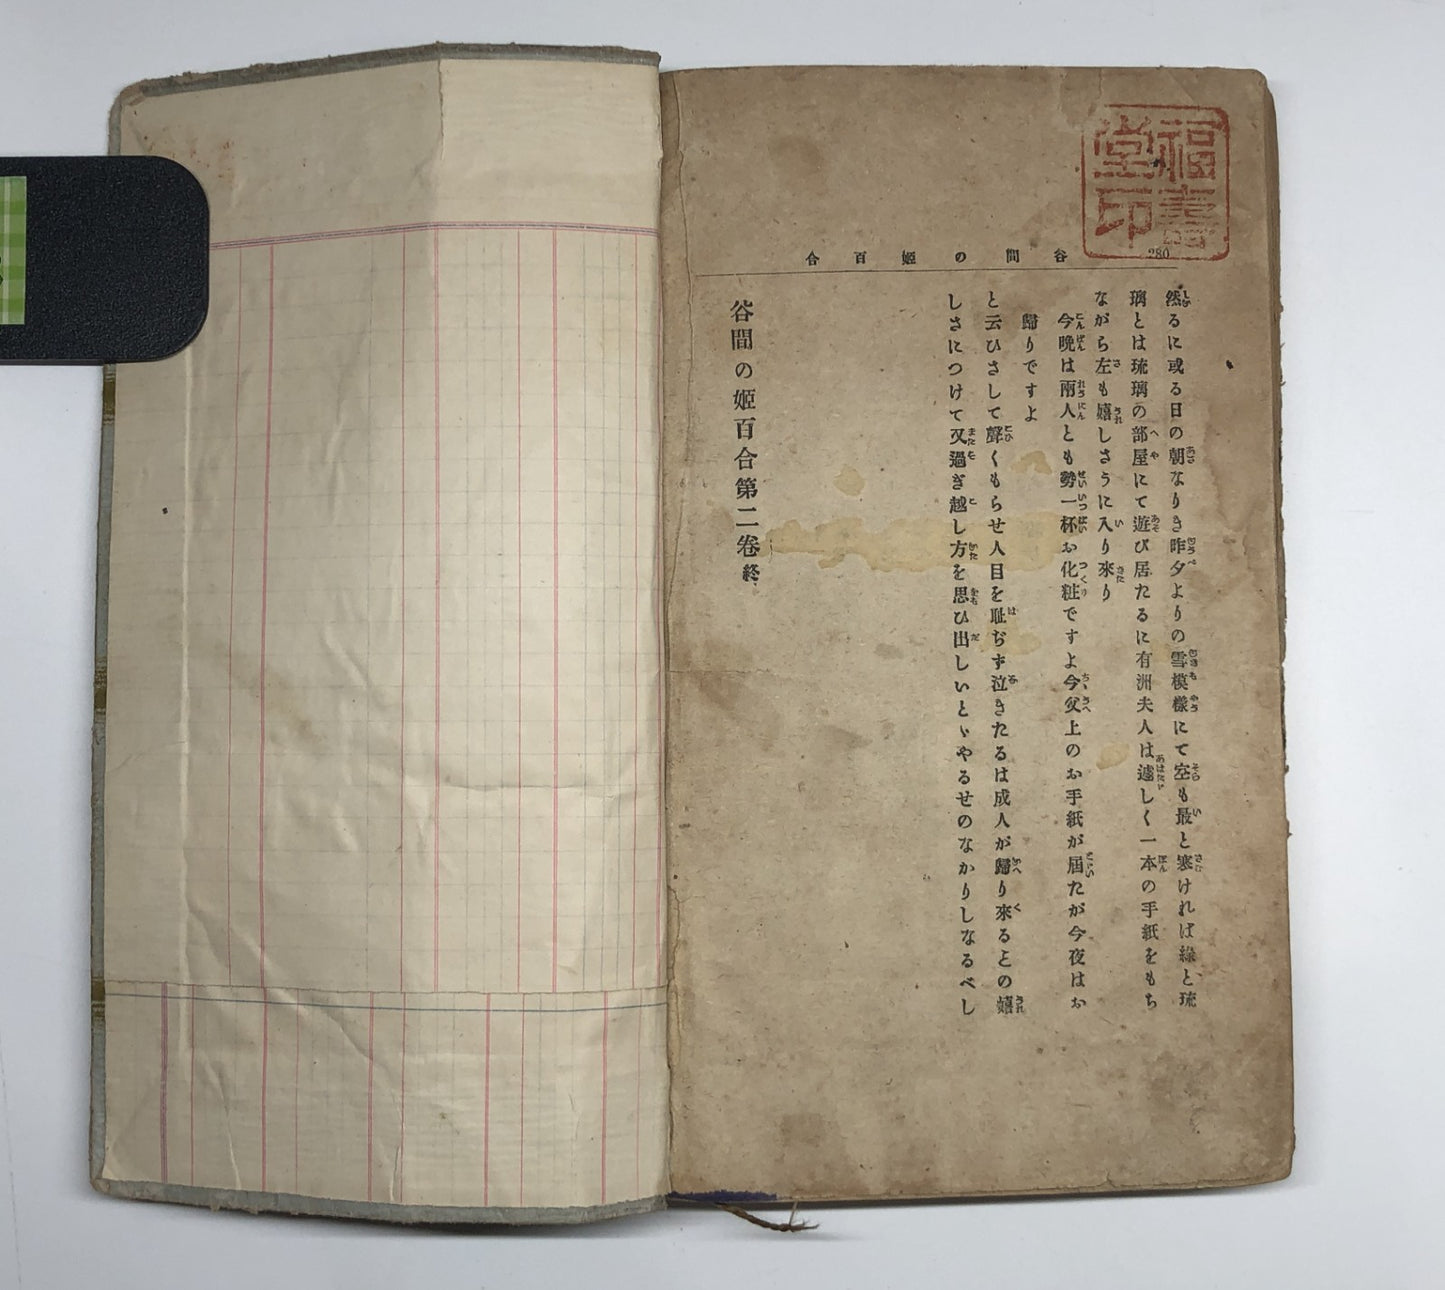 福壽堂印
280
谷間の姫百合
然るに或る日の朝なりき昨夕よりの雪模樣にて空も最と寒ければ緣と琉
璃とは琉璃の部屋にて遊び居たるに有洲夫人は遽しく一本の手紙をもち
ながら左も嬉しさうに入り來り
今晩は兩人とも勢一杯お化粧ですよ今父上のお手紙が屆たが今夜はお
歸りですよ
と云ひさして聲くもらせ人目を耻ぢず泣きたるは成人が歸り來るとの嬉
しさにつけて又過ぎ越し方を思ひ出しいとゞやるせのなかりしなるべし
谷間の姫百合第二卷終